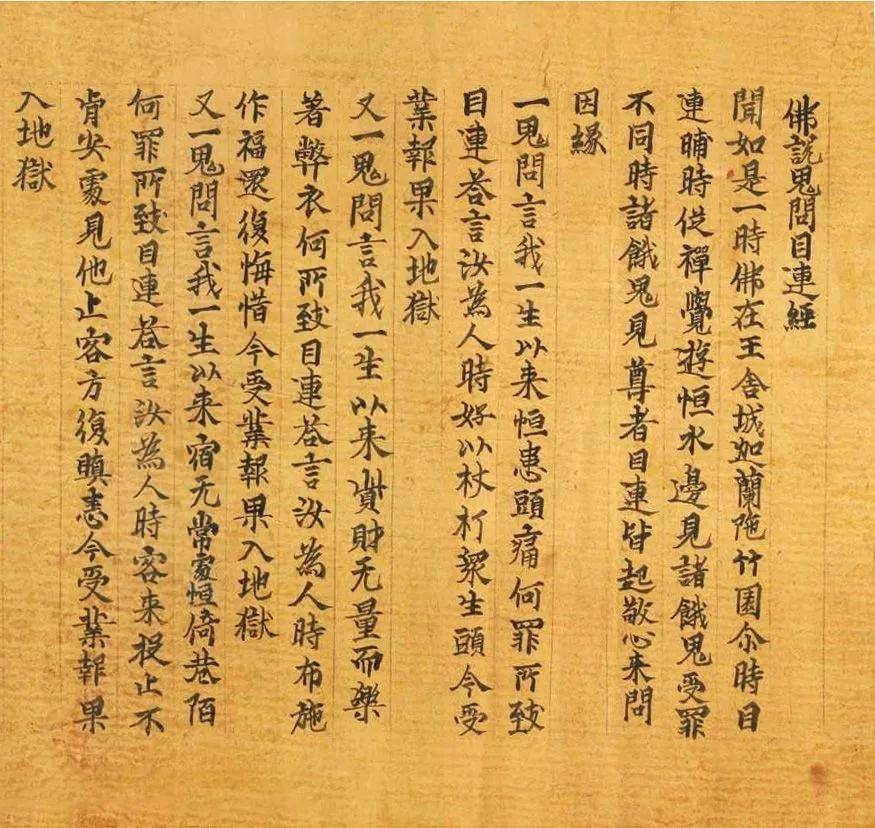 佛說鬼問目連經
聞如是一時佛在王舍城迦蘭陁竹園尒時目
連晡時從禪覺遊恒水邊見諸餓鬼受罪
不同時諸餓鬼見尊者目連皆起敬心来問
因緣
一鬼問言我一生以来恒患頭痛何罪所致
目連荅言汝為人時好以杖打衆生頭今受
業報果入地獄
又一鬼問言我一生以来資財无量而樂
著弊衣何所致目連荅言汝為人時布施
作福還復悔惜今受業報果入地獄
又一鬼問言我一生以来宿无常處恒倚巷陌
何罪所致目連荅言汝為人時客来投止不
肯安處見他止客方復瞋恚今受業報果
入地獄